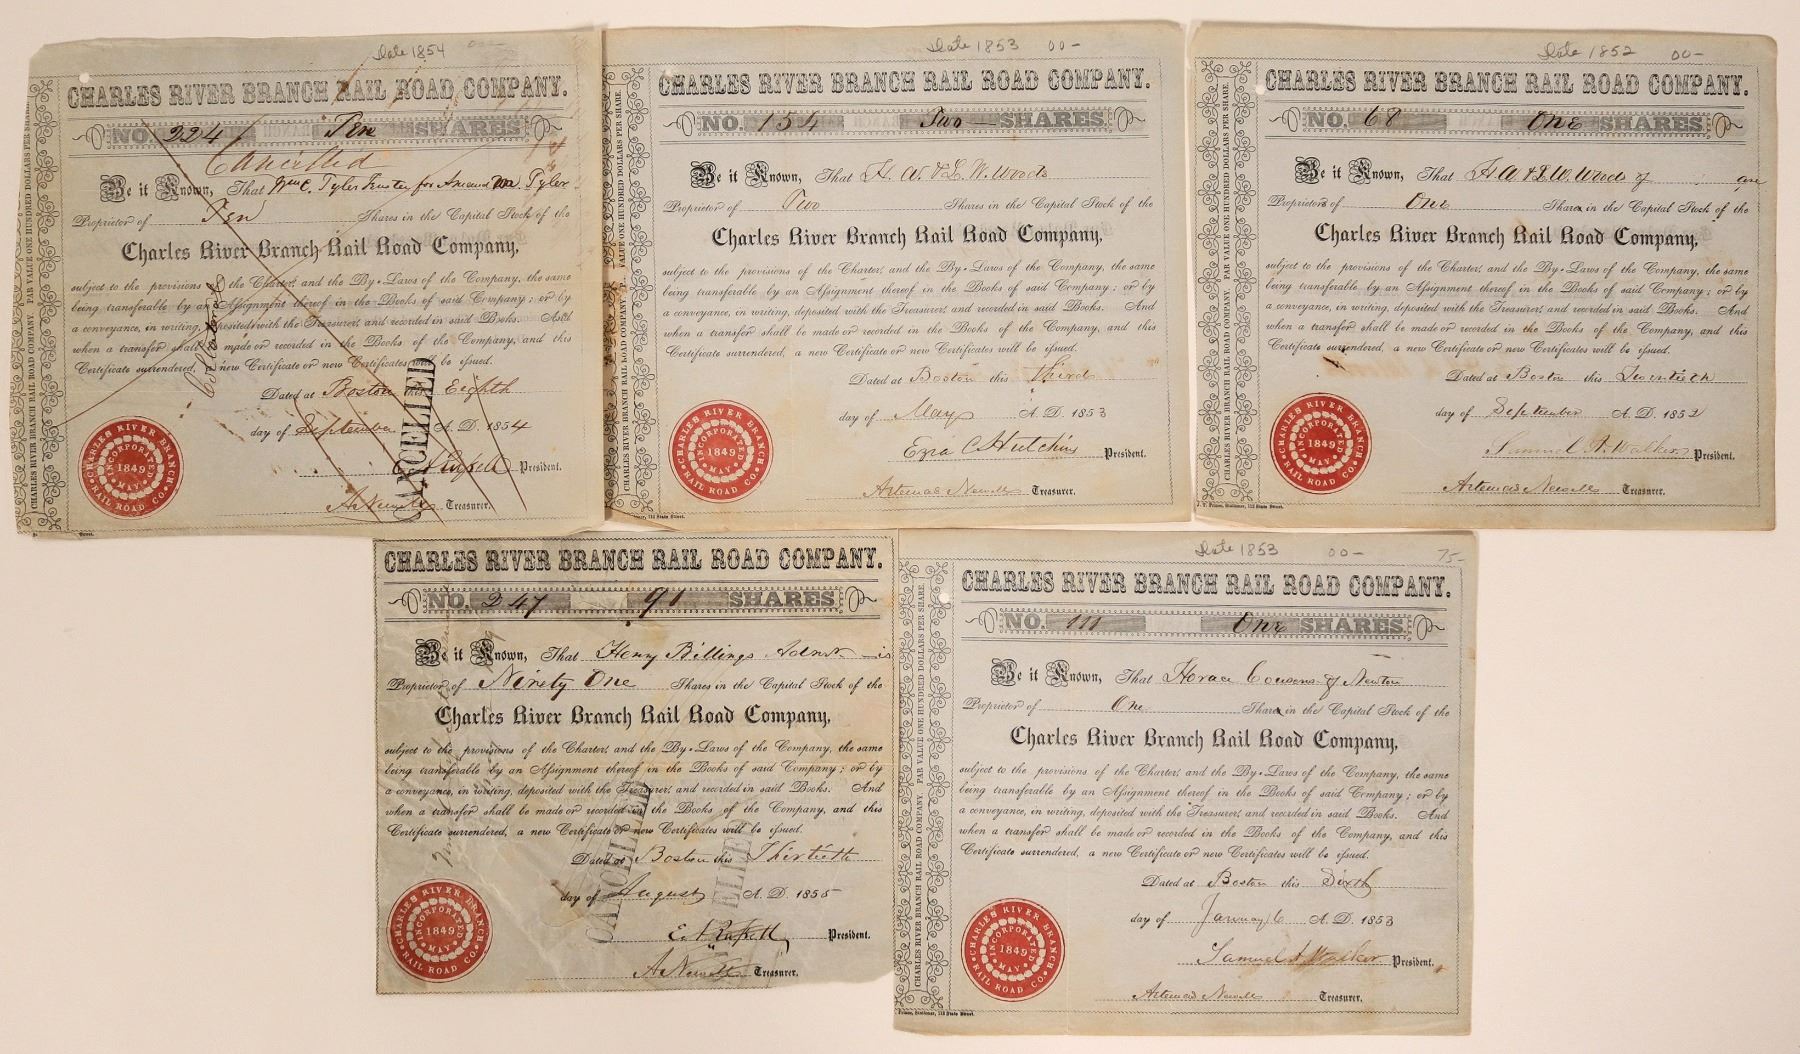 Date 1854
CHARLES RIVER BRANCH RAIL ROAD COMPANY.
NO. 224 Ten SHARES
Cancelled
Be it Known, That Wm C. Tyler Trustee for Tyler
Proprietor of Ten Shares in the Capital Stock of the
Charles River Branch Rail Road Company,
subject to the provisions of the Charter, and the By-Laws of the Company, the same
being transferable by an Assignment thereof in the Books of said Company; or by
a conveyance, in writing, deposited with the Treasurer, and recorded in said Books. And
when a transfer shall be made or recorded in the Books of the Company, and this
Certificate surrendered, a new Certificate or new Certificates will be issued.
Collateral
Dated at Boston this Eighth
day of September A. D. 1854
President.
A. Newell Treasurer.
CANCELLED
CHARLES RIVER BRANCH RAIL ROAD CO.
INCORPORATED 1849 MAY
CHARLES RIVER BRANCH RAIL ROAD COMPANY. PAR VALUE ONE HUNDRED DOLLARS PER SHARE.
Street.
Date 1853 00-
CHARLES RIVER BRANCH RAIL ROAD COMPANY.
NO. 154 Two SHARES
Be it Known, That H. W. & L. W. Woods
Proprietor of Two Shares in the Capital Stock of the
Charles River Branch Rail Road Company,
subject to the provisions of the Charter, and the By-Laws of the Company, the same
being transferable by an Assignment thereof in the Books of said Company; or by
a conveyance, in writing, deposited with the Treasurer, and recorded in said Books. And
when a transfer shall be made or recorded in the Books of the Company, and this
Certificate surrendered, a new Certificate or new Certificates will be issued.
Dated at Boston this Third
day of May A. D. 1853
Ezra C Hutchins President.
Artemas Newell Treasurer.
CHARLES RIVER BRANCH RAIL ROAD CO.
INCORPORATED 1849 MAY
CHARLES RIVER BRANCH RAIL ROAD COMPANY. P VALUE ONE HUNDRED DOLLARS PER SHARE.
112 State Street.
Date 1852 00-
CHARLES RIVER BRANCH RAIL ROAD COMPANY.
NO. 68 One SHARES
Be it Known, That H W & L W. Woods of are
Proprietors of One Shares in the Capital Stock of the
Charles River Branch Rail Road Company,
subject to the provisions of the Charter, and the By-Laws of the Company, the same
being transferable by an Assignment thereof in the Books of said Company; or by
a conveyance, in writing, deposited with the Treasurer, and recorded in said Books. And
when a transfer shall be made or recorded in the Books of the Company, and this
Certificate surrendered, a new Certificate or new Certificates will be issued.
Dated at Boston this Twentieth
day of September A. D. 1852
Samuel A. Walker President.
Artemas Newell Treasurer.
CHARLES RIVER BRANCH RAIL ROAD CO.
INCORPORATED 1849 MAY
CHARLES RIVER BRANCH RAIL ROAD COMPANY. PAR VALUE ONE HUNDRED DOLLARS PER SHARE.
Stationer, 112 State Street.
CHARLES RIVER BRANCH RAIL ROAD COMPANY.
NO. 247 91 SHARES
Be it Known, That Henry Billings Admr is
Proprietor of Ninety One Shares in the Capital Stock of the
Charles River Branch Rail Road Company,
subject to the provisions of the Charter, and the By-Laws of the Company, the same
being transferable by an Assignment thereof in the Books of said Company; or by
a conveyance, in writing, deposited with the Treasurer, and recorded in said Books. And
when a transfer shall be made or recorded in the Books of the Company, and this
Certificate surrendered, a new Certificate or new Certificates will be issued.
Dated at Boston this Thirtieth
day of August A. D. 1855
President.
A Newell Treasurer.
CANCELLED
CHARLES RIVER BRANCH RAIL ROAD CO.
INCORPORATED 1849 MAY
Date 1853 00- 75-
CHARLES RIVER BRANCH RAIL ROAD COMPANY.
NO. 111 One SHARES
Be it Known, That Horace Cousens of Newton
Proprietor of One Share in the Capital Stock of the
Charles River Branch Rail Road Company,
subject to the provisions of the Charter, and the By-Laws of the Company, the same
being transferable by an Assignment thereof in the Books of said Company; or by
a conveyance, in writing, deposited with the Treasurer, and recorded in said Books. And
when a transfer shall be made or recorded in the Books of the Company, and this
Certificate surrendered, a new Certificate or new Certificates will be issued.
Dated at Boston this Sixth
day of January 6 A. D. 1853
Samuel A. Walker President.
Artemas Newell Treasurer.
CHARLES RIVER BRANCH RAIL ROAD CO.
INCORPORATED 1849 MAY
CHARLES RIVER BRANCH RAIL ROAD COMPANY. PAR VALUE ONE HUNDRED DOLLARS PER SHARE.
Stationer, 112 State Street.